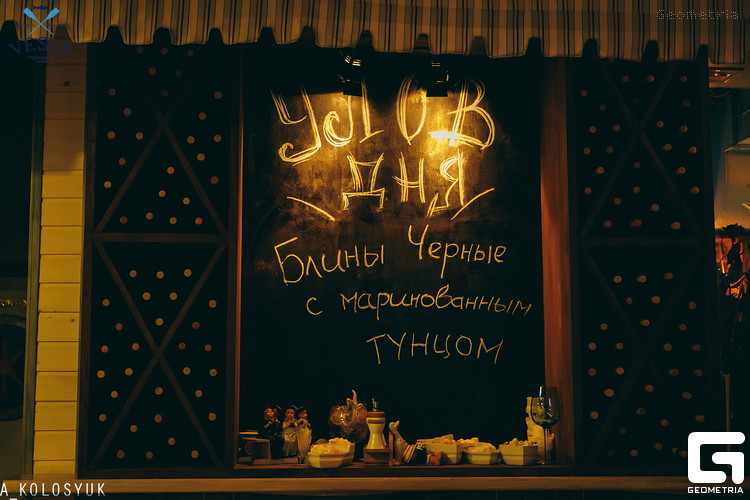 Geometria
УЛОВ
ДНЯ
Блины Черные
с маринованным
тунцом
A_KOLOSYUK
GEOMETRIA